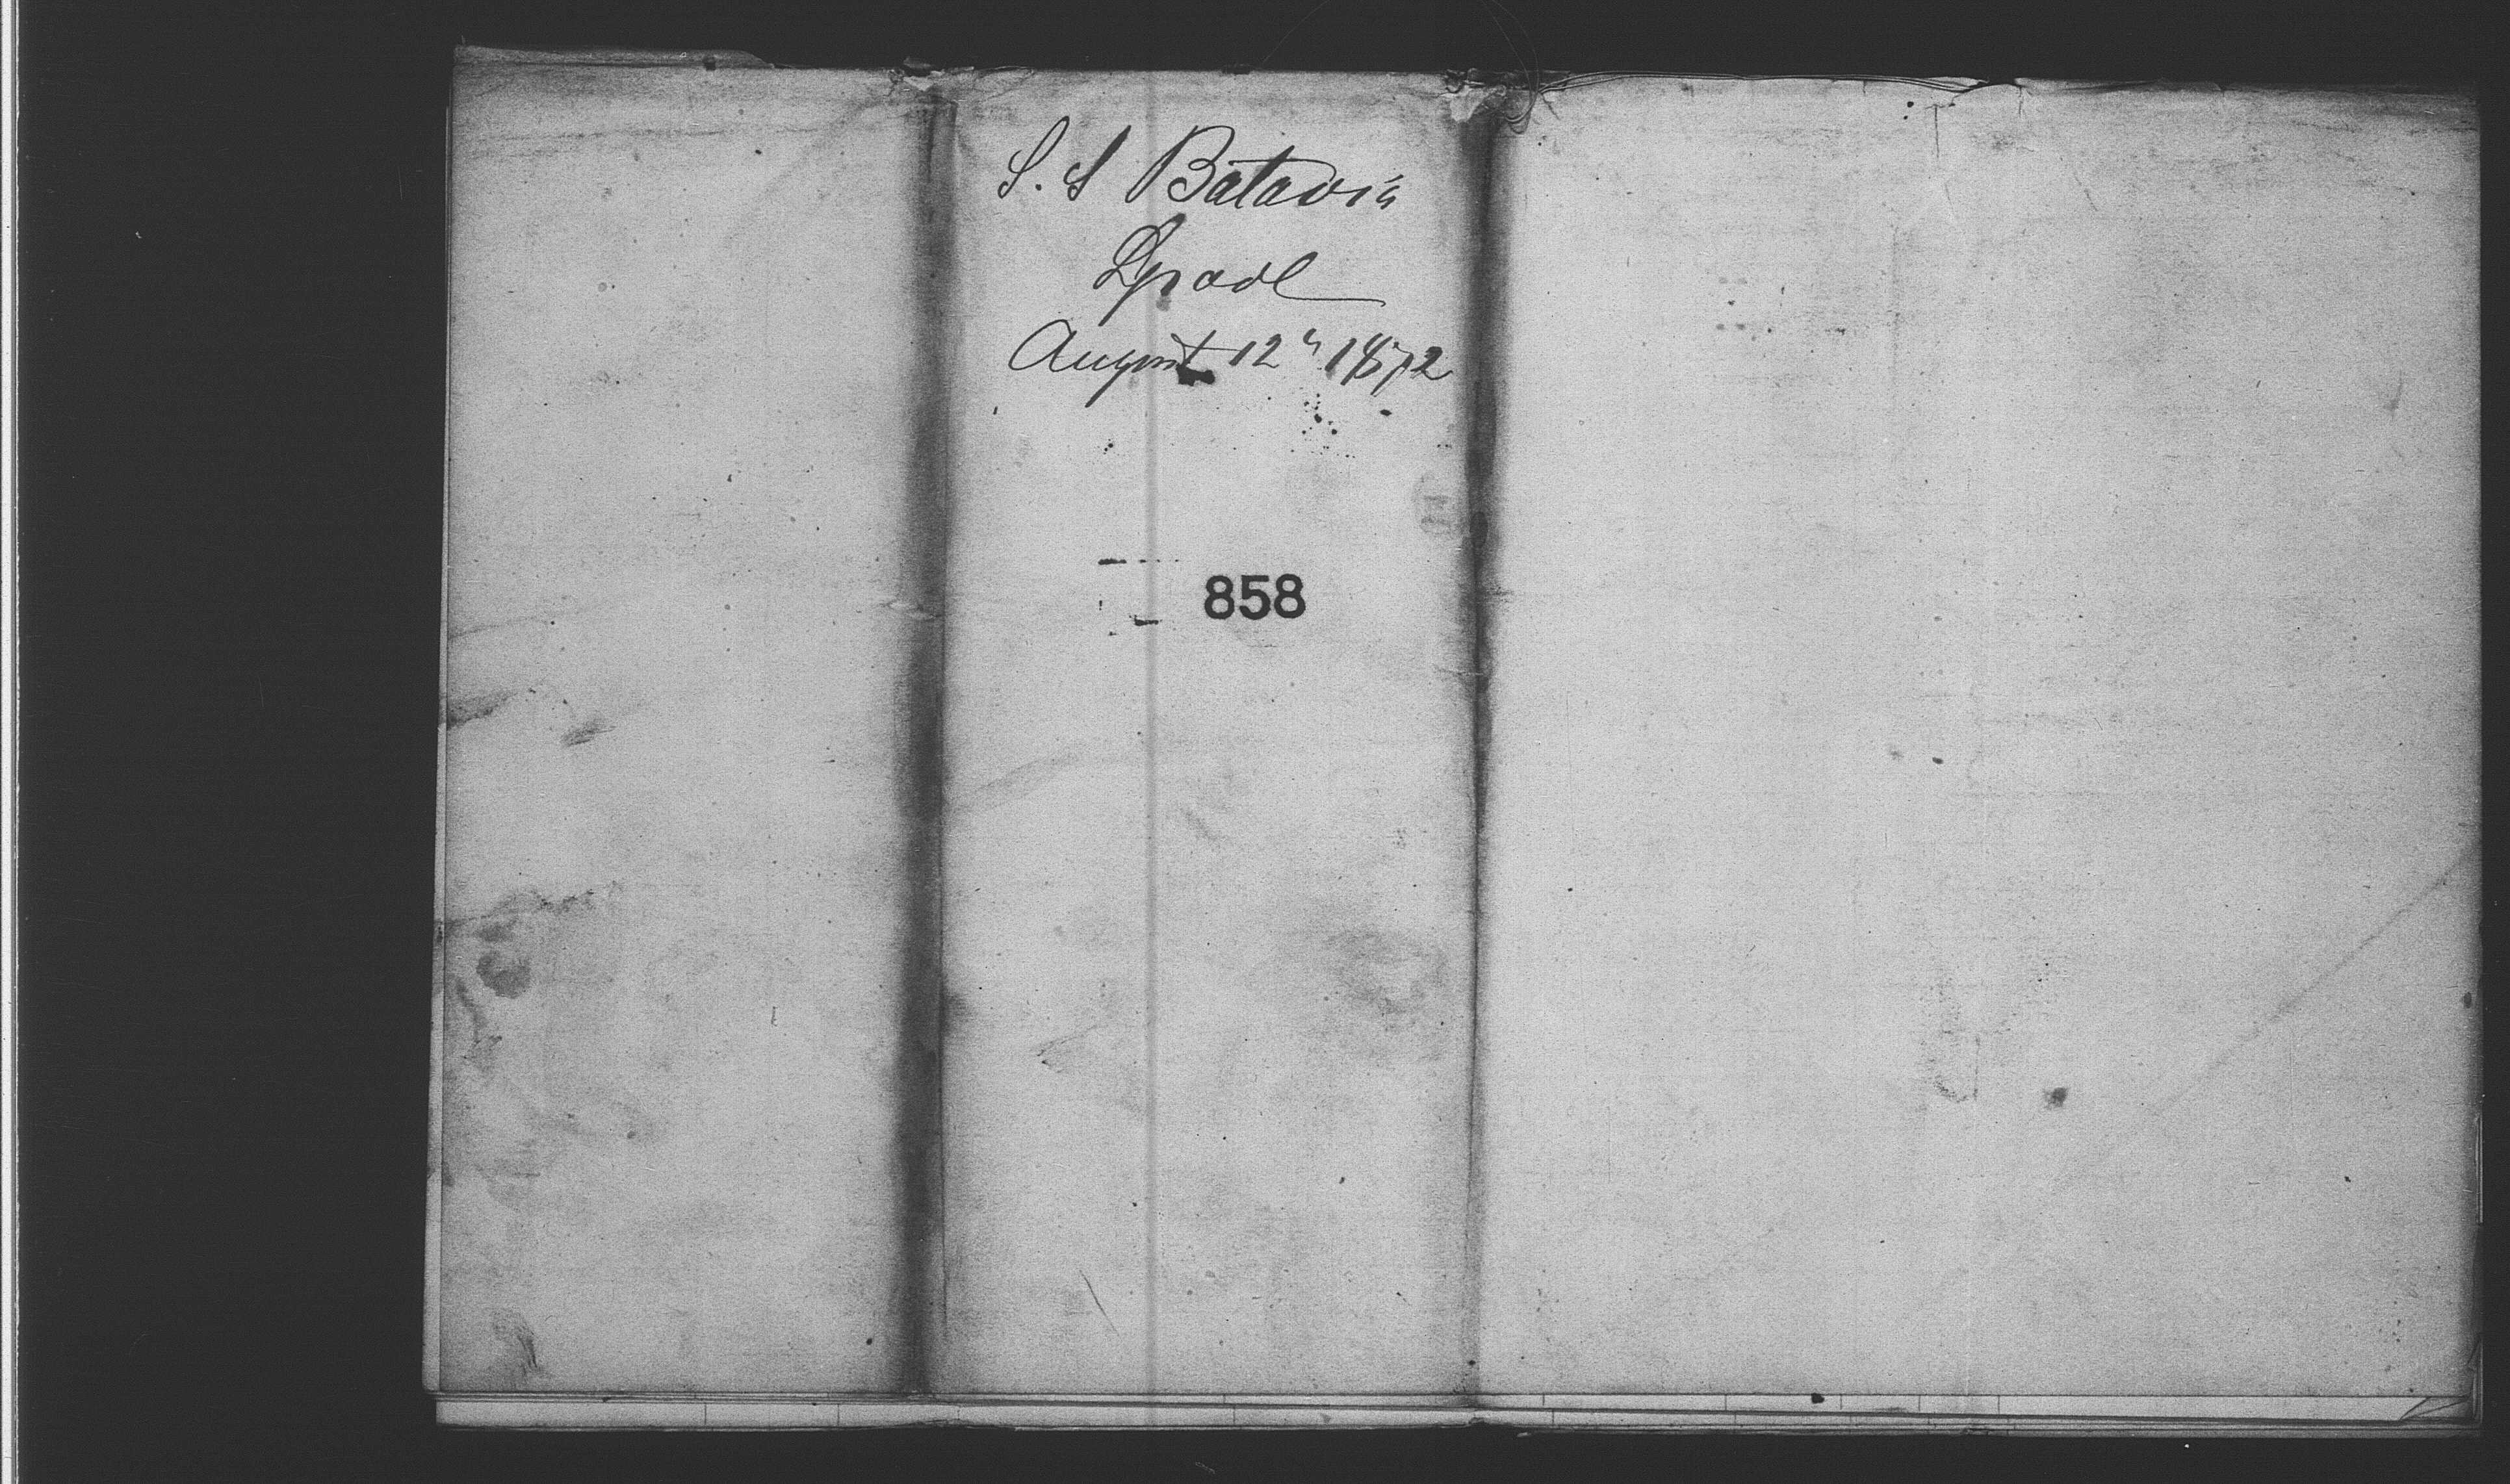 S. S Batavia
Lpool
August 12th 1872
858